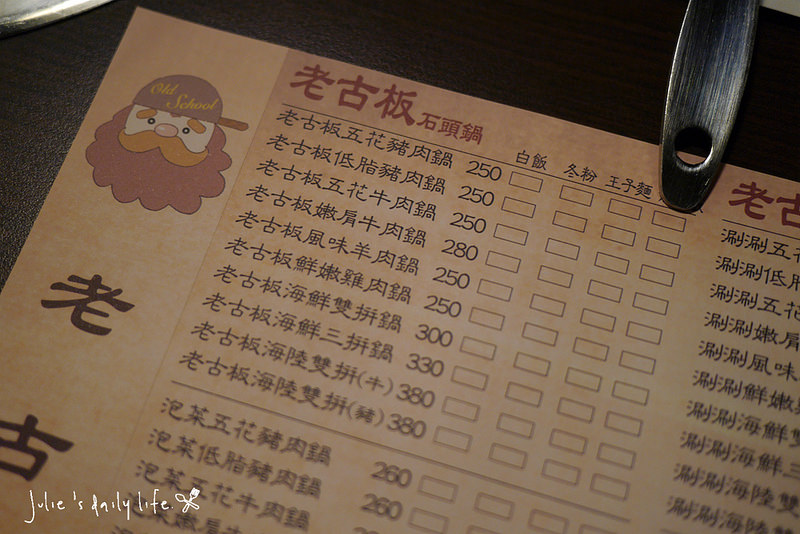 Old School
老
古
老古板 石頭鍋
白飯 冬粉 王子麵
老古板五花豬肉鍋 250
老古板低脂豬肉鍋 250
老古板五花牛肉鍋 250
老古板嫩肩牛肉鍋 280
老古板風味羊肉鍋 250
老古板鮮嫩雞肉鍋 250
老古板海鮮雙拼鍋 300
老古板海鮮三拼鍋 330
老古板海陸雙拼(牛) 380
老古板海陸雙拼(豬) 380
泡菜五花豬肉鍋 260
泡菜低脂豬肉鍋 260
泡菜五花牛肉鍋
老古
涮涮五花
涮涮低脂
涮涮五花
涮涮嫩肩
涮涮風味
涮涮鮮嫩
涮涮海鮮雙
涮涮海鮮三
涮涮海陸雙
涮涮海陸雙
Julie's daily life.